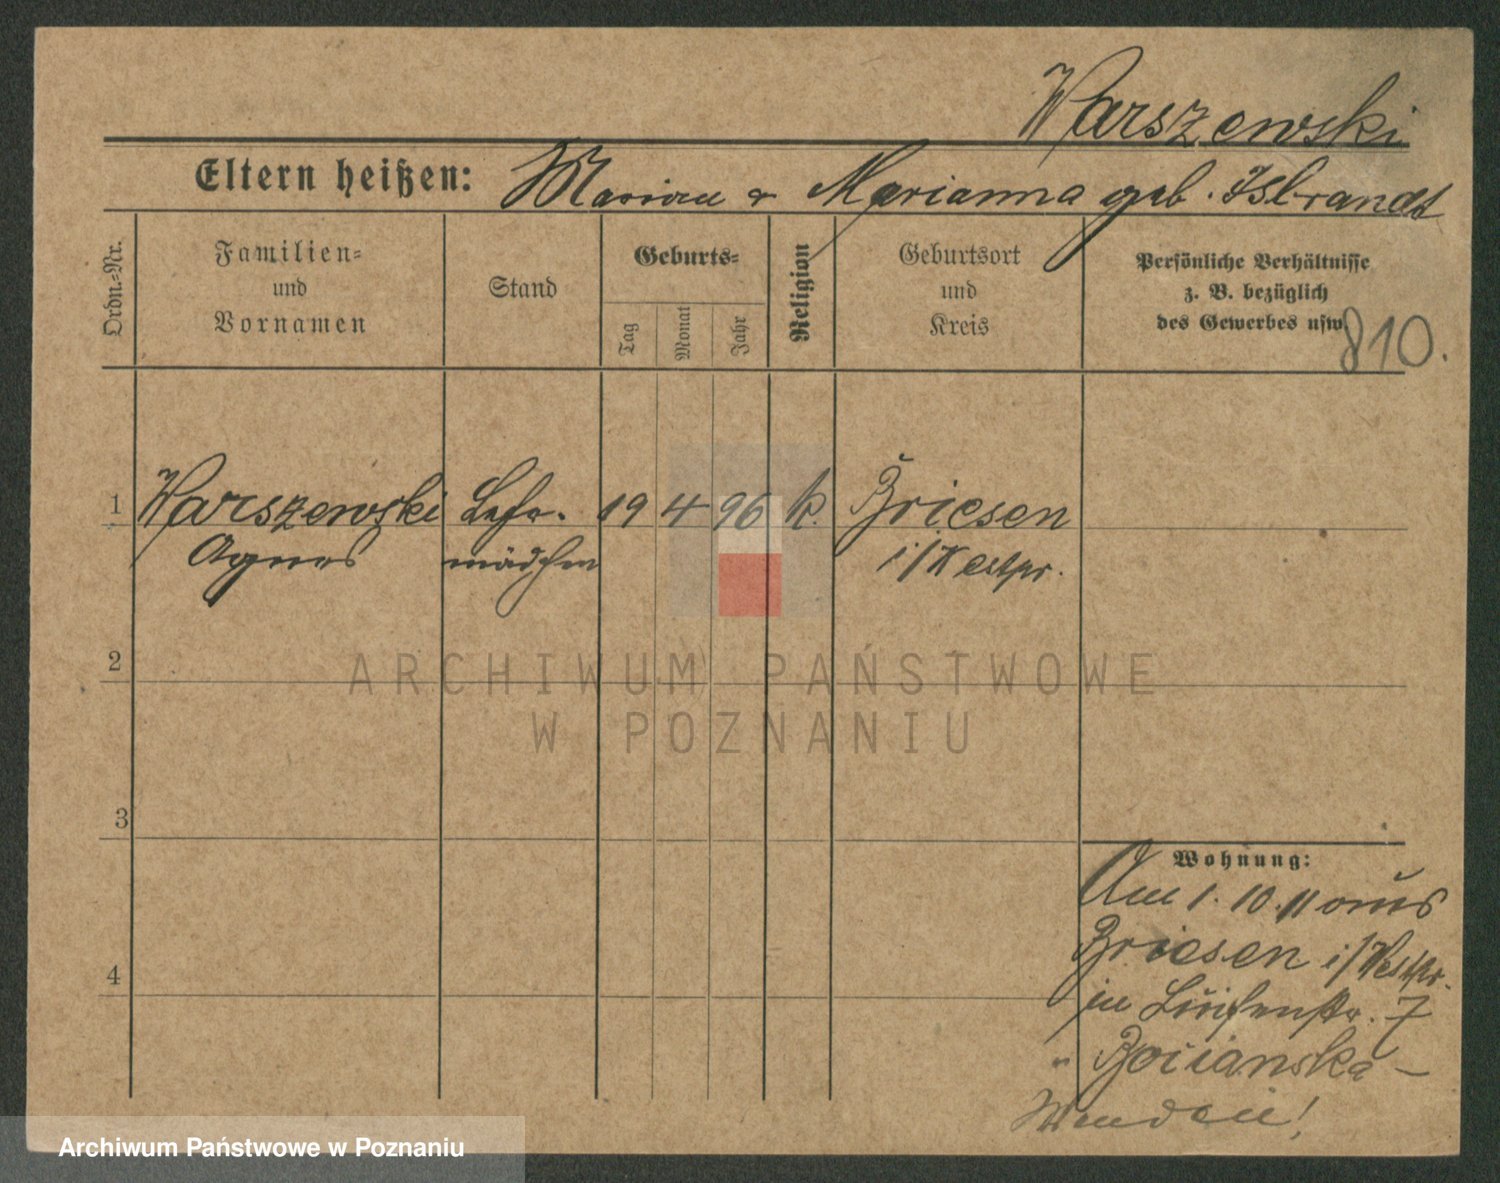 Warszewski
Eltern heißen: Marian & Marianna geb. Isbrandt
Ordn.-Nr.
Familien-
und
Vornamen
Stand
Geburts-
Tag
Monat
Jahr
Religion
Geburtsort
und
Kreis
Persönliche Verhältnisse
z. B. bezüglich
des Gewerbes usw.
810.
1 Warszewski Lehr- 19 4 96 k. Briesen
Agnes mädchen i/Westpr.
2
3
4
Wohnung:
Am 1. 10. 11 aus
Briesen i/Westpr.
in Luisenstr. 7
" Bocianska -
Wenden!
ARCHIWUM PAŃSTWOWE
W POZNANIU
Archiwum Państwowe w Poznaniu